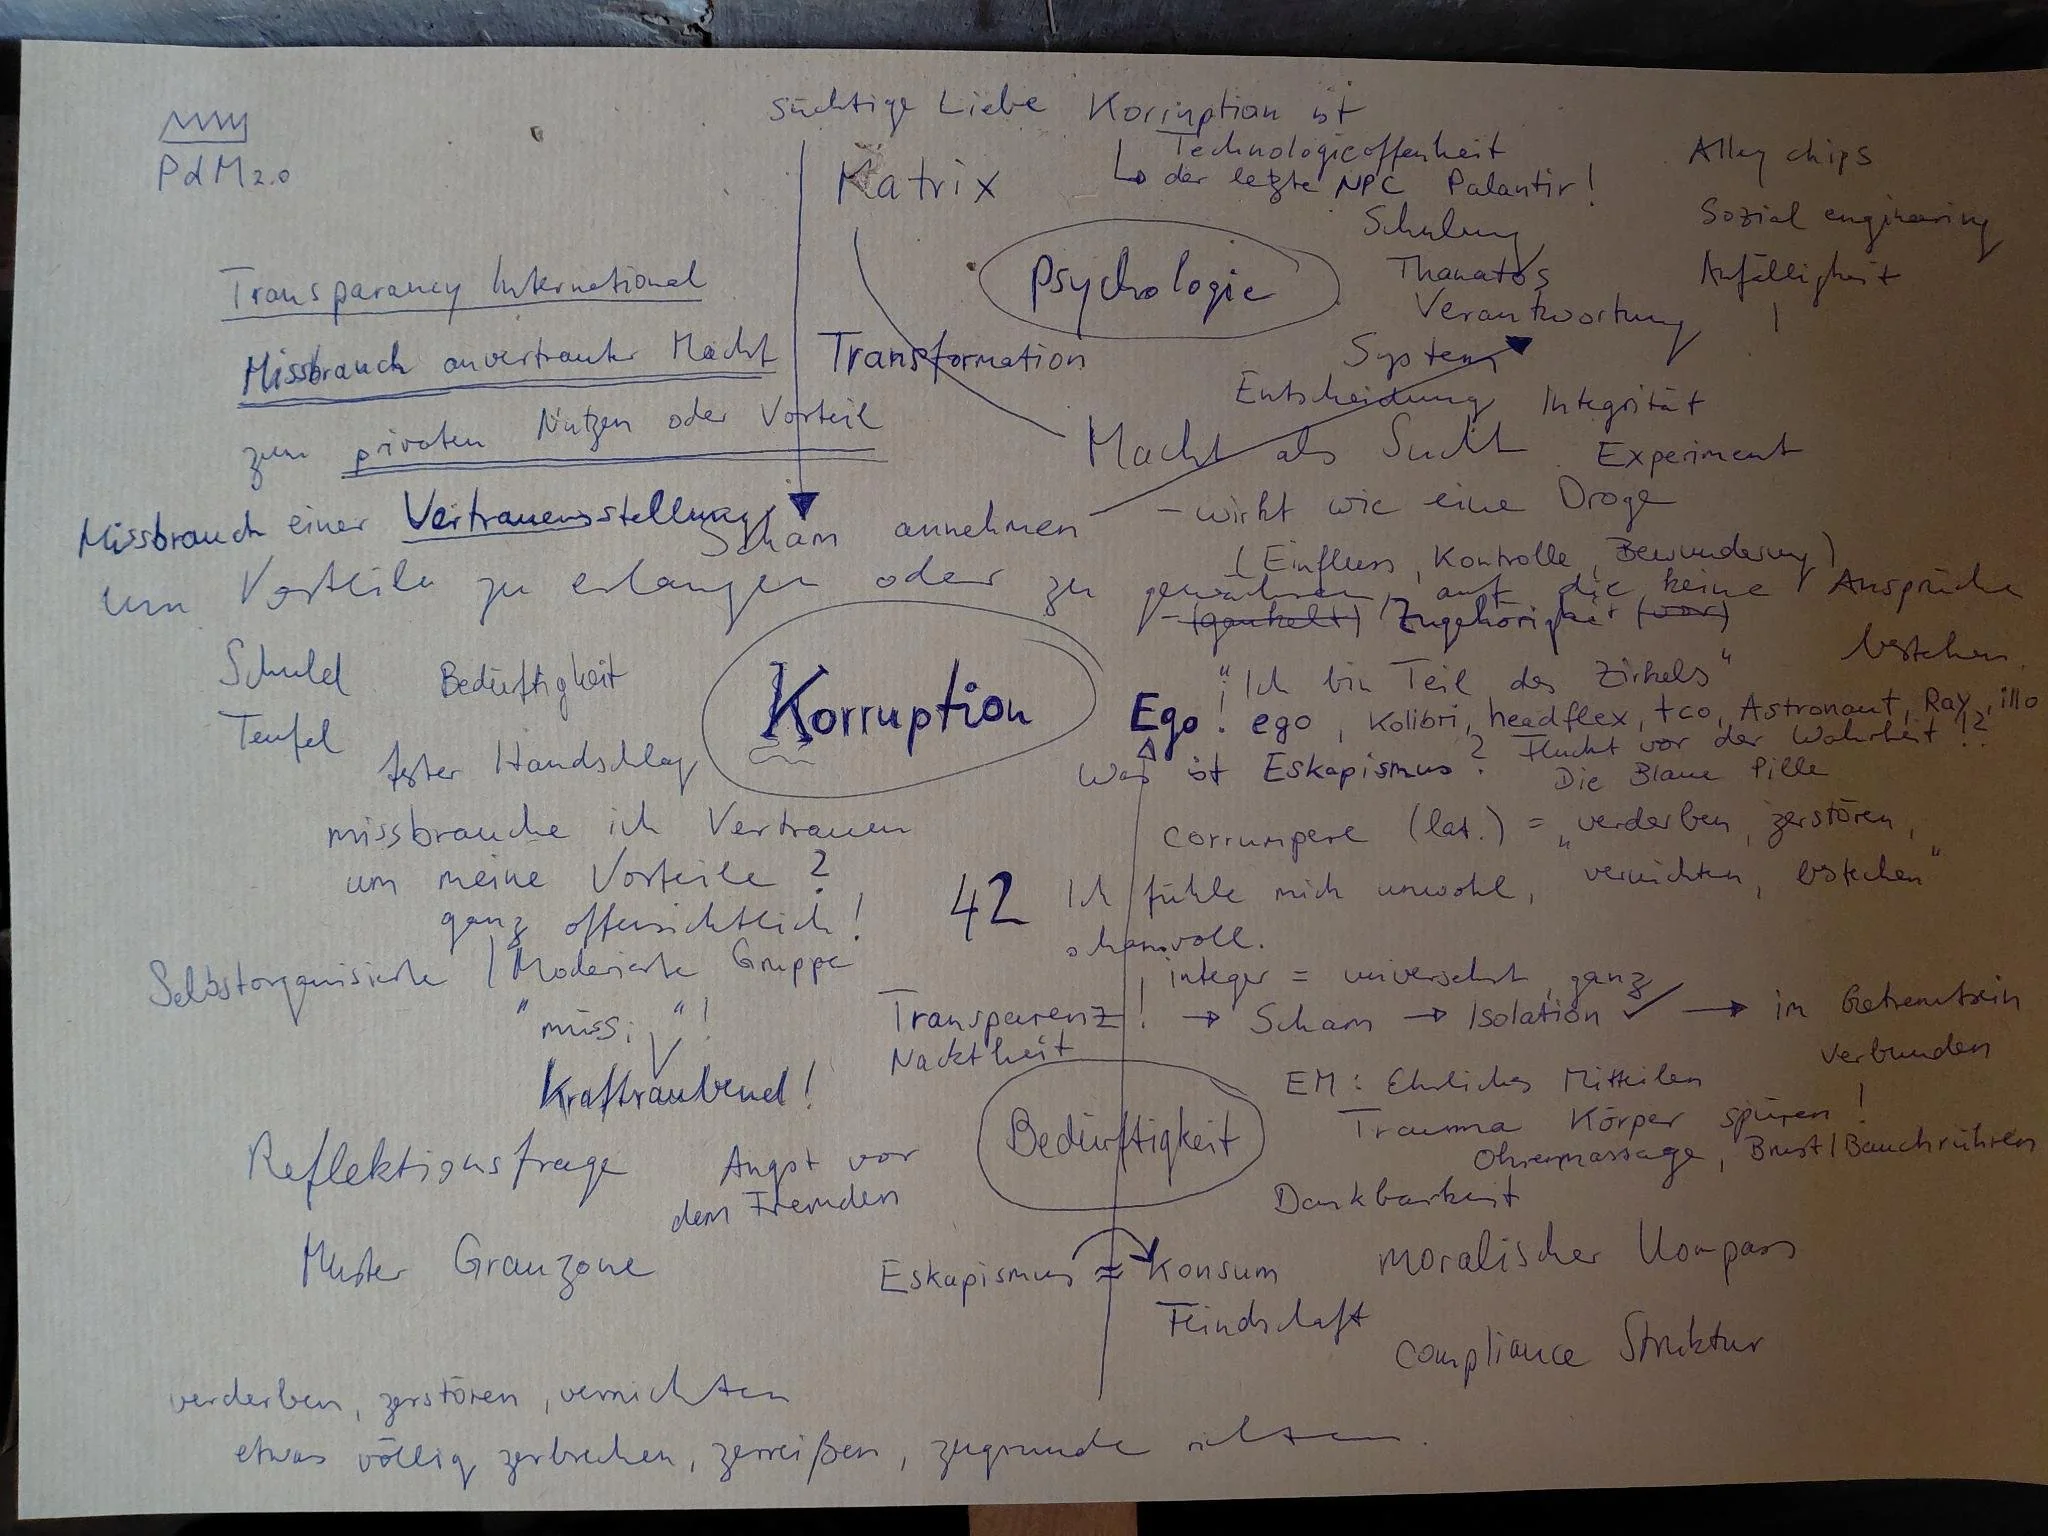 süchtige Liebe Korruption ist
PdM 2.0
Matrix
Technologieoffenheit
der letzte NPC Palantir!
Schulung
Thanatos
Verantwortung
System
Entscheidung Integrität
Experiment
chips
Sozial engineering
Anfälligkeit
Psychologie
Transparancy International
Missbrauch anvertrauter Macht
zum privaten Nutzen oder Vorteil
Transformation
Macht als Sucht
- wirkt wie eine Droge
(Einfluss, Kontrolle, Bewunderung)
- (gaukelt) Zugehörigkeit (vor)
"Ich bin Teil des Zirkels"
Missbrauch einer Vertrauensstellung,
um Vorteile zu erlangen oder zu gewähren, auf die keine Ansprüche
bestehen.
Scham annehmen
Schuld Bedürftigkeit
Teufel
fester Handschlag
Korruption
Ego! ego, Kolibri, headflex, tco, Astronaut, Ray, illo
Was ist Eskapismus? Flucht vor der Wahrheit!?
Die Blaue Pille
missbrauche ich Vertrauen
um meine Vorteile?
ganz offensichtlich!
corrumpere (lat.) = "verderben, zerstören,
vernichten, bestechen"
42
Ich fühle mich unwohl,
schamvoll.
Selbstorganisierte / Moderierte Gruppe
"müssi"!
Kraftraubend!
integer = unversehrt, ganz
Transparenz! → Scham → Isolation ✓ → im Getrenntsein
verbunden
Nacktheit
Bedürftigkeit
EM: Ehrliches Mitteilen
Trauma Körper spüren!
Ohrenmassage, Brust/Bauchrühren
Dankbarkeit
Reflektionsfrage
Angst vor
dem Fremden
Muster Grauzone
Eskapismus = Konsum
Feindschaft
moralischer Kompass
compliance Struktur
verderben, zerstören, vernichten
etwas völlig zerbrechen, zerreißen, zugrunde richten.